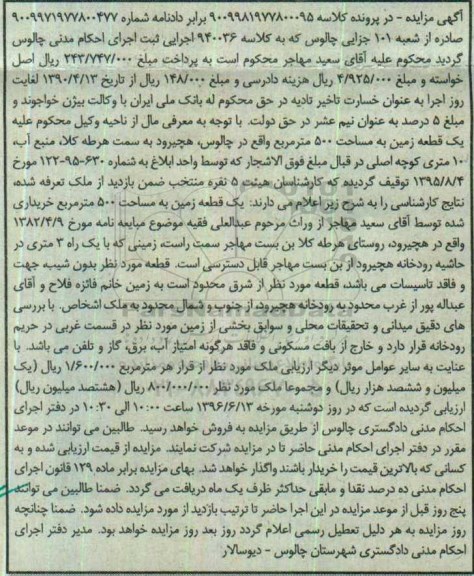 آگهی مزایده - در پرونده کلاسه ۹۰۰۹۹۸۱۹۷۷۸۰۰۰۹۵ برابر دادنامه شماره ۹۰۰۹۹۷۱۹۷۷۸۰۰۴۷۷
صادره از شعبه ۱۰۱ جزایی چالوس که به کلاسه ۹۴۰۰۳۶ اجرایی ثبت اجرای احکام مدنی چالوس
گردید محکوم علیه آقای سعید مهاجر محکوم است به پرداخت مبلغ ۲۴۳/۷۴۷/۰۰۰ ریال اصل
خواسته و مبلغ ۴/۹۲۵/۰۰۰ ریال هزینه دادرسی و مبلغ ۱۴۸/۰۰۰ ریال از تاریخ ۱۳۹۰/۴/۱۳ لغایت
روز اجرا به عنوان خسارت تاخیر تادیه در حق محکوم له بانک ملی ایران با وکالت بیژن خواجوند و
مبلغ ۵ درصد به عنوان نیم عشر در حق دولت. با توجه به معرفی مال از ناحیه وکیل محکوم علیه
یک قطعه زمین به مساحت ۵۰۰ مترمربع واقع در چالوس، هچیرود به سمت هرطه کلا، منبع آب،
۱۰ متری کوچه اصلی در قبال مبلغ فوق الاشجار که توسط واحد ابلاغ به شماره ۶۳۰-۹۵-۱۲۲ مورخ
۱۳۹۵/۸/۴ توقیف گردیده که کارشناسان هیئت ۵ نفره منتخب ضمن بازدید از ملک تعرفه شده،
نتایج کارشناسی را به شرح زیر اعلام می دارند: یک قطعه زمین به مساحت ۵۰۰ مترمربع خریداری
شده توسط آقای سعید مهاجر از وراث مرحوم عبدالعلی فقیه موضوع مبایعه نامه مورخ ۱۳۸۲/۴/۹
واقع در هچیرود، روستای هرطه کلا بن بست مهاجر سمت راست، زمینی که با یک راه ۳ متری در
حاشیه رودخانه هچیرود از بن بست مهاجر قابل دسترسی است. قطعه مورد نظر بدون شیب، جهت
و فاقد تاسیسات می باشد، قطعه مورد نظر از شرق محدود است به زمین خانم فائزه فلاح و آقای
عبداله پور از غرب محدود به رودخانه هچیرود، از جنوب و شمال محدود به ملک اشخاص. با بررسی
های دقیق میدانی و تحقیقات محلی و سوابق بخشی از زمین مورد نظر در قسمت غربی در حریم
رودخانه قرار دارد و خارج از بافت مسکونی و فاقد هرگونه امتیاز آب، برق، گاز و تلفن می باشد. با
عنایت به سایر عوامل موثر دیگر ارزیابی ملک مورد نظر از قرار هر مترمربع ۱/۶۰۰/۰۰۰ ریال (یک
میلیون و ششصد هزار ریال) و مجموعا ملک مورد نظر ۸۰۰/۰۰۰/۰۰۰ ریال (هشتصد میلیون ریال)
ارزیابی گردیده است که در روز دوشنبه مورخه ۱۳۹۶/۶/۱۳ ساعت ۱۰:۰۰ الی ۱۰:۳۰ در دفتر اجرای
احکام مدنی دادگستری چالوس از طریق مزایده به فروش خواهد رسید. طالبین می توانند در موعد
مقرر در دفتر اجرای احکام مدنی حاضر تا در مزایده شرکت نمایند. مزایده از قیمت ارزیابی شده و به
کسانی که بالاترین قیمت را خریدار باشند واگذار خواهد شد. بهای مزایده برابر ماده ۱۲۹ قانون اجرای
احکام مدنی ده درصد نقدا و مابقی حداکثر ظرف یک ماه دریافت می گردد. ضمنا طالبین می توانند
پنج روز قبل از موعد مزایده در این اجرا حاضر تا ترتیب بازدید از مورد مزایده داده شود. ضمنا چنانچه
روز مزایده به هر دلیل تعطیل رسمی اعلام گردد روز بعد روز مزایده خواهد بود. مدیر دفتر اجرای
احکام مدنی دادگستری شهرستان چالوس - دیوسالار